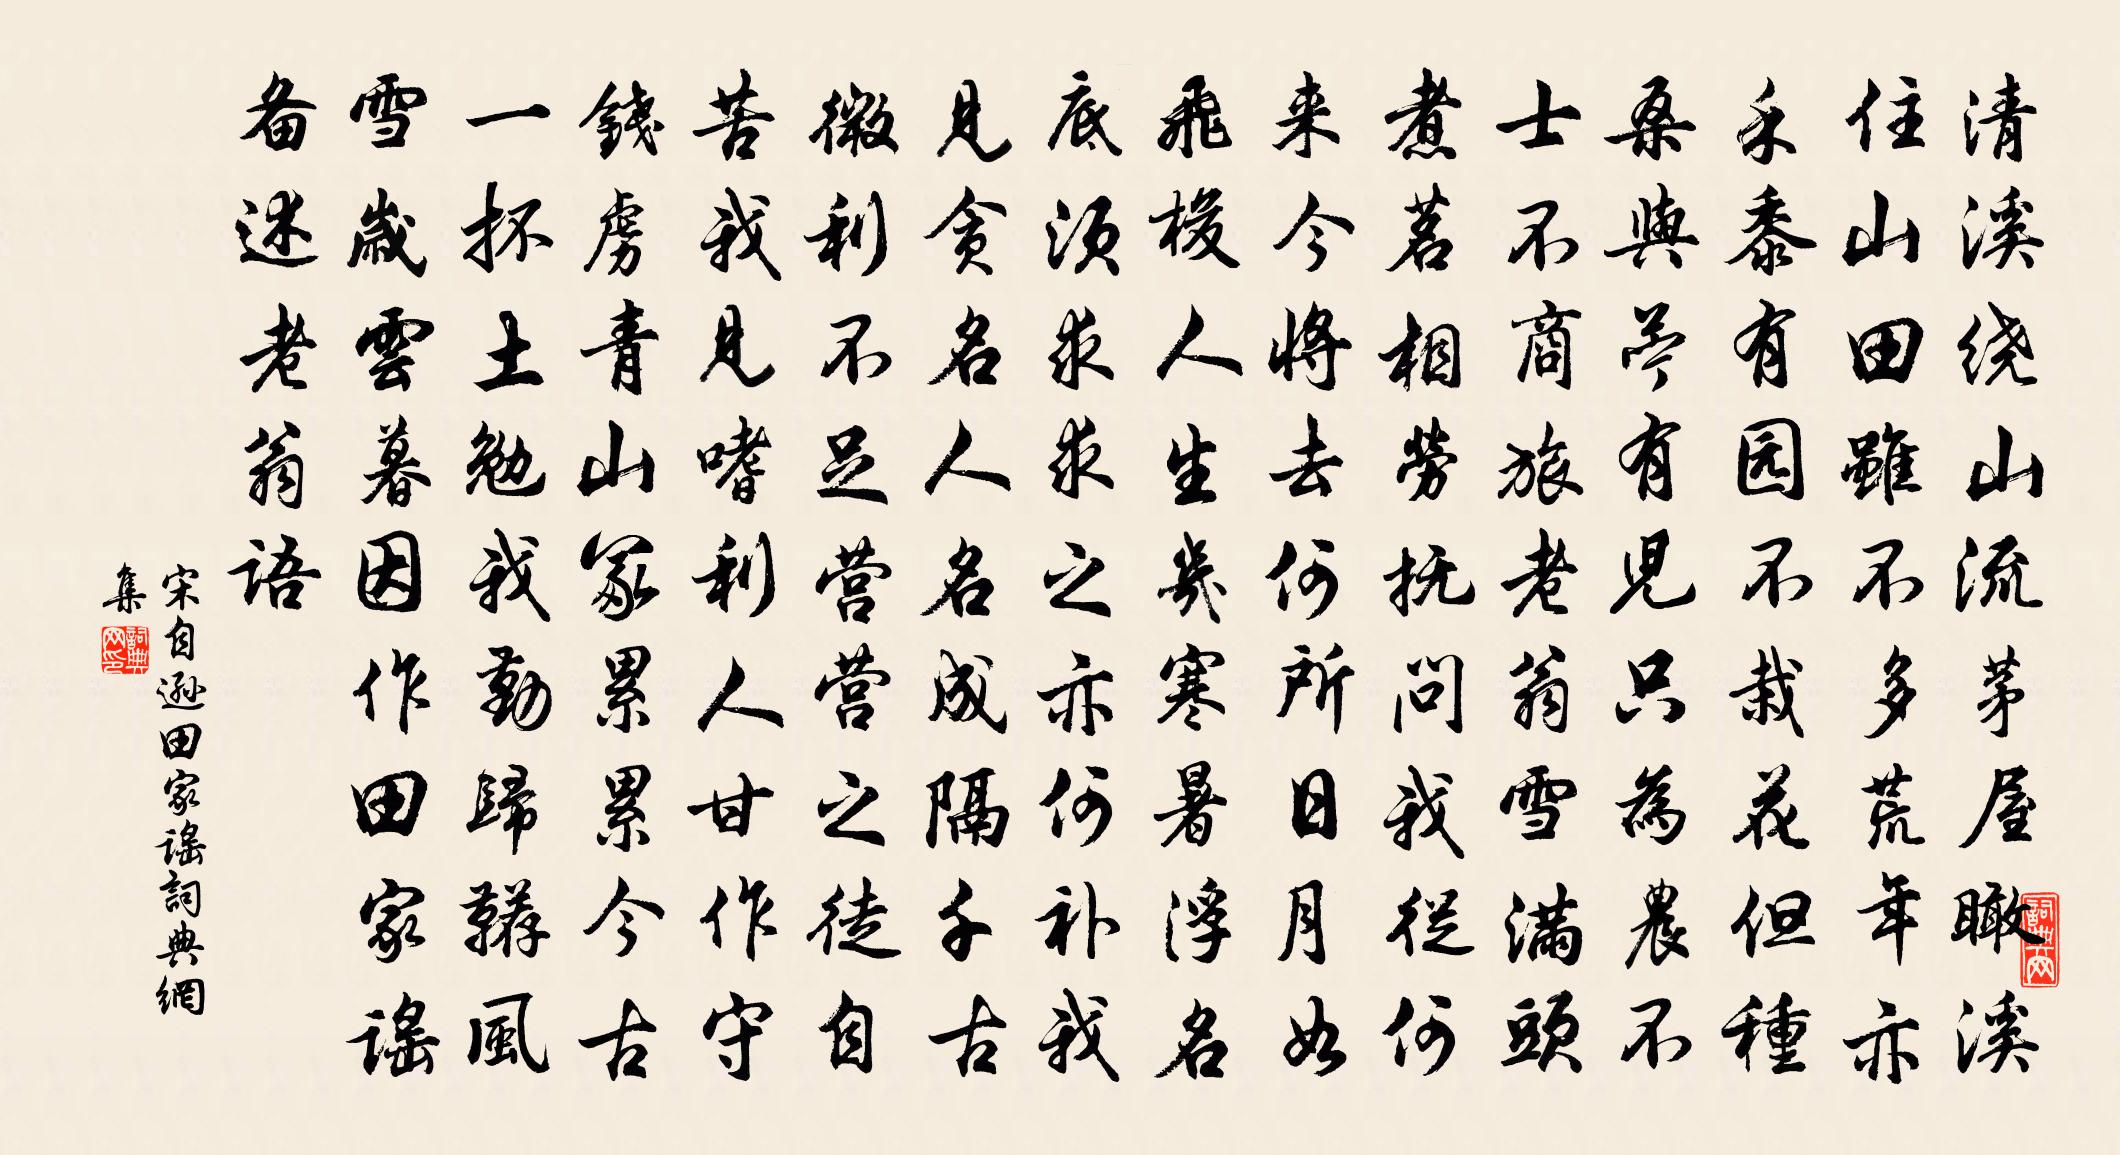 清溪绕山流茅屋瞰溪
住山田雖不多荒年亦
禾黍有园不栽花但種
桑與苎有児只為農不
士不商旅老翁雪满頭
煮茗相劳抚问我從何
来今将去何所日月如
飛梭人生幾寒暑浮名
底须求求之亦何补我
見贪名人名成隔千古
微利不足营营之徒自
苦我見嗜利人甘作守
錢虏青山冢累累今古
一抔土勉我勤歸耕風
雪歲雲暮因作田家謡
备述老翁语
宋自逊田家谣詞典網
集
詞典网
詞典网印